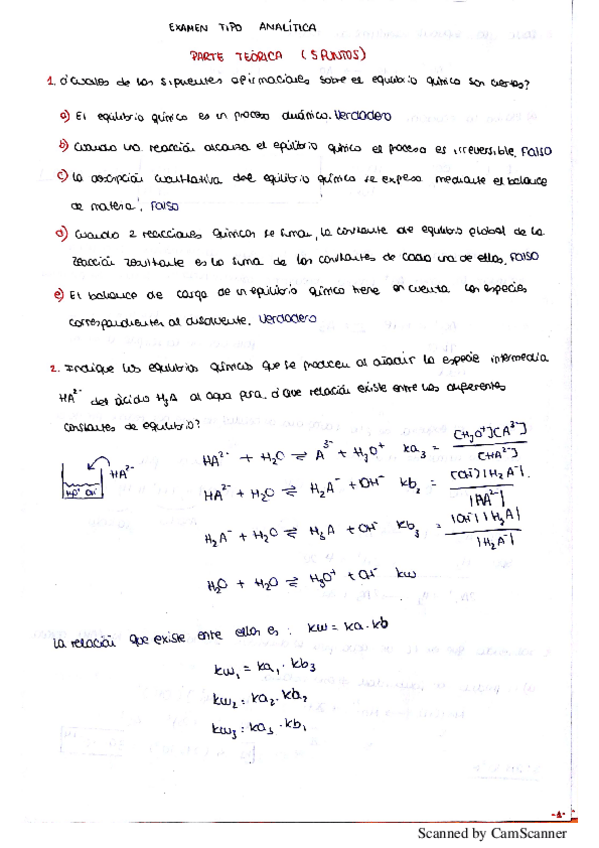 EXAMEN TIPO ANALÍTICA
PARTE TEÓRICA (5 PUNTOS)
1. ¿Cuáles de las siguientes afirmaciones sobre el equilibrio químico son ciertas?
a) El equilibrio químico es un proceso dinámico. Verdadero
b) Cuando una reacción alcanza el equilibrio químico el proceso es irreversible. Falso
c) La descripción cuantitativa del equilibrio químico se expresa mediante el balance
de materia. Falso
d) Cuando 2 reacciones químicas se suman, la constante de equilibrio global de la
reacción resultante es la suma de las constantes de cada una de ellas. Falso
e) El balance de carga de un equilibrio químico tiene en cuenta las especies
correspondientes al disolvente. Verdadero
2. Indique los equilibrios químicos que se producen al añadir la especie intermedia
HA²⁻ del ácido H₃A al agua pura. ¿Qué relación existe entre las diferentes
constantes de equilibrio?
HA²⁻ + H₂O ⇌ A³⁻ + H₃O⁺ ka₃ = [H₃O⁺][A³⁻] / [HA²⁻]
HA²⁻
HA²⁻ + H₂O ⇌ H₂A⁻ + OH⁻ kb₂ = [OH⁻][H₂A⁻] / [HA²⁻]
H₂A⁻ + H₂O ⇌ H₃A + OH⁻ kb₃ = [OH⁻][H₃A] / [H₂A⁻]
H₂O + H₂O ⇌ H₃O⁺ + OH⁻ kw
La relación que existe entre ellos es: kw = ka · kb
kw₁ = ka₁ · kb₃
kw₂ = ka₂ · kb₂
kw₃ = ka₃ · kb₁
-1-
Scanned by CamScanner